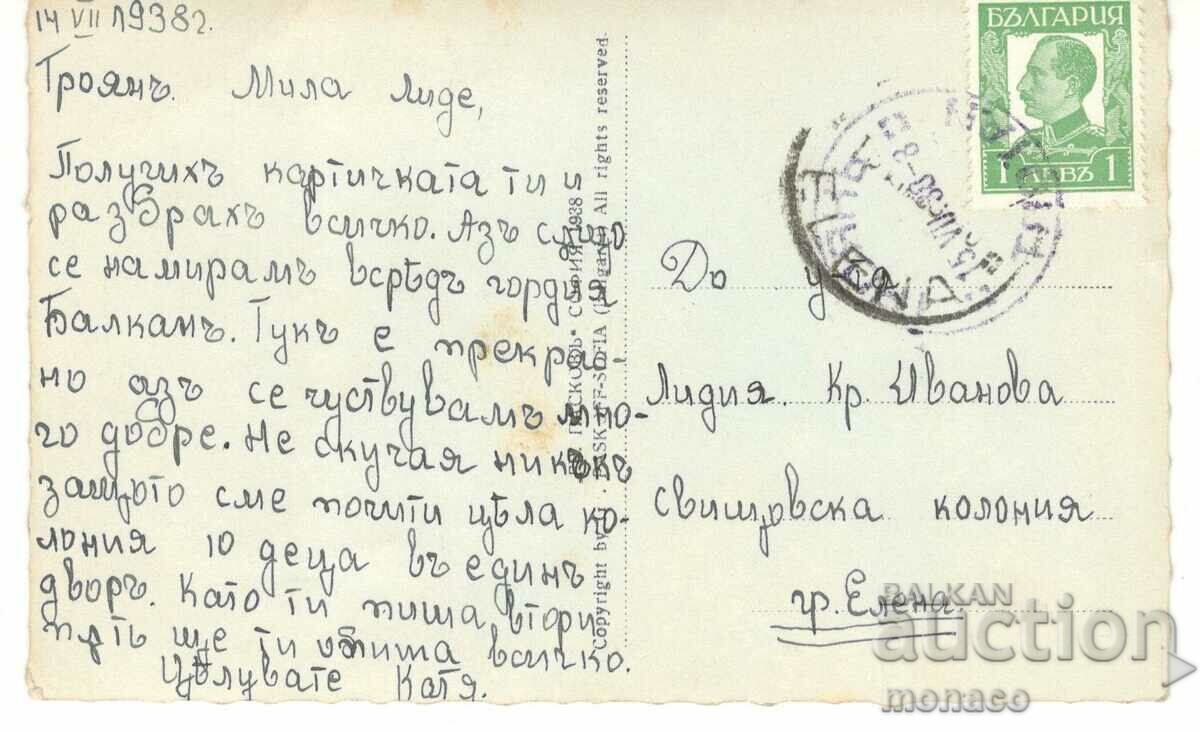 14 VII 1938 г.
Троянъ. Мила Лиде,
Получихъ картичката ти и
разбрахъ всичко. Азъ също
се намирамъ всрѣдъ гордия
Балканъ. Тукъ е прекра-
но азъ се чуствувамъ мно-
го добре. Не скучая никакъ
защото сме почти цѣла ко-
лония 10 деца въ единъ
дворъ. Като ти пиша втори
пъть ще ти опиша всичко.
Цѣлувате Катя.
Copyright by
SOFIA (Bulgaria) All rights reserved.
СОФИЯ 1938
БЪЛГАРИЯ
1 ЛЕВЪ 1
До уч-ка
Лидия. Кр. Иванова
свищовска колония
гр. Елена.
BALKAN
auction
monaco